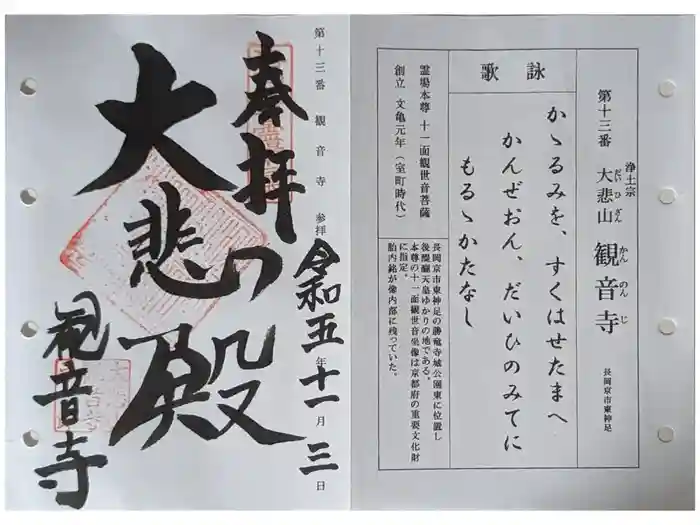 第十三番 観音寺 参拝
奉拝
大悲殿
観音寺
令和五年十一月三日
第十三番
浄土宗
大悲山 観音寺
だいひざん かんのんじ
長岡京市東神足
詠歌
かゝるみを、すくはせたまへ
かんぜおん、だいひのみてに
もるゝかたなし
霊場本尊 十一面観世音菩薩
創立 文亀元年(室町時代)
長岡京市東神足の勝竜寺城公園東に位置し
後醍醐天皇ゆかりの地である。
本尊の十一面観世音坐像は京都府の重要文化財
に指定。
胎内銘が像内部に残っていた。